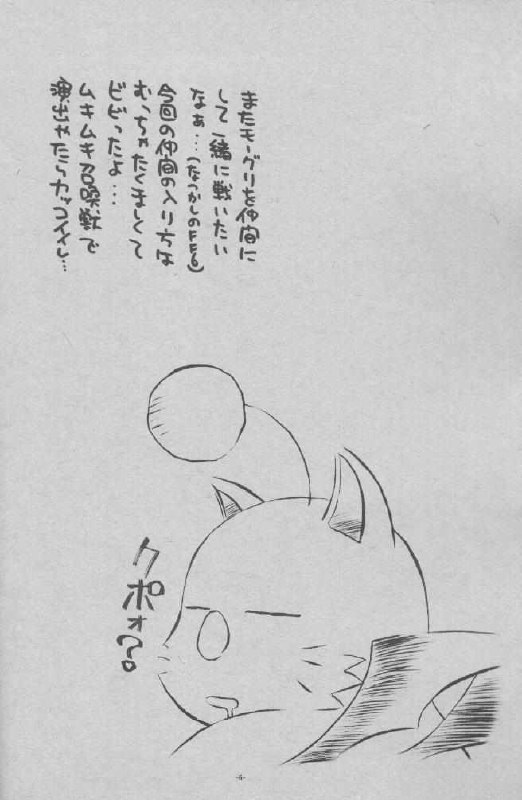 またモーグリを仲間に
して一緒に戦いたい
なぁ…(なつかしのFF6)
今回の仲間の入り方は
むっちゃたくましくて
ビビったよ…
ムキムキ召喚獣で
演出やたらカッコイイし…
クポォ?。
-4-